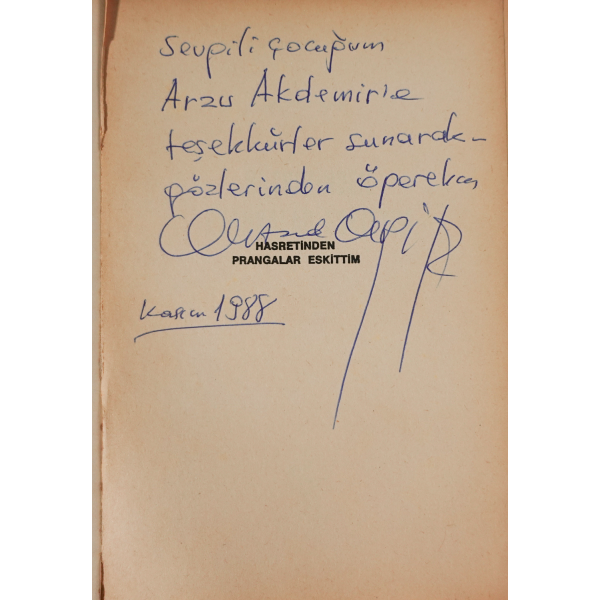 Sevgili çocuğum
Arzu Akdemir'e
teşekkürler sunarak-
gözlerinden öperek
HASRETİNDEN
PRANGALAR ESKİTTİM
Kasım 1988